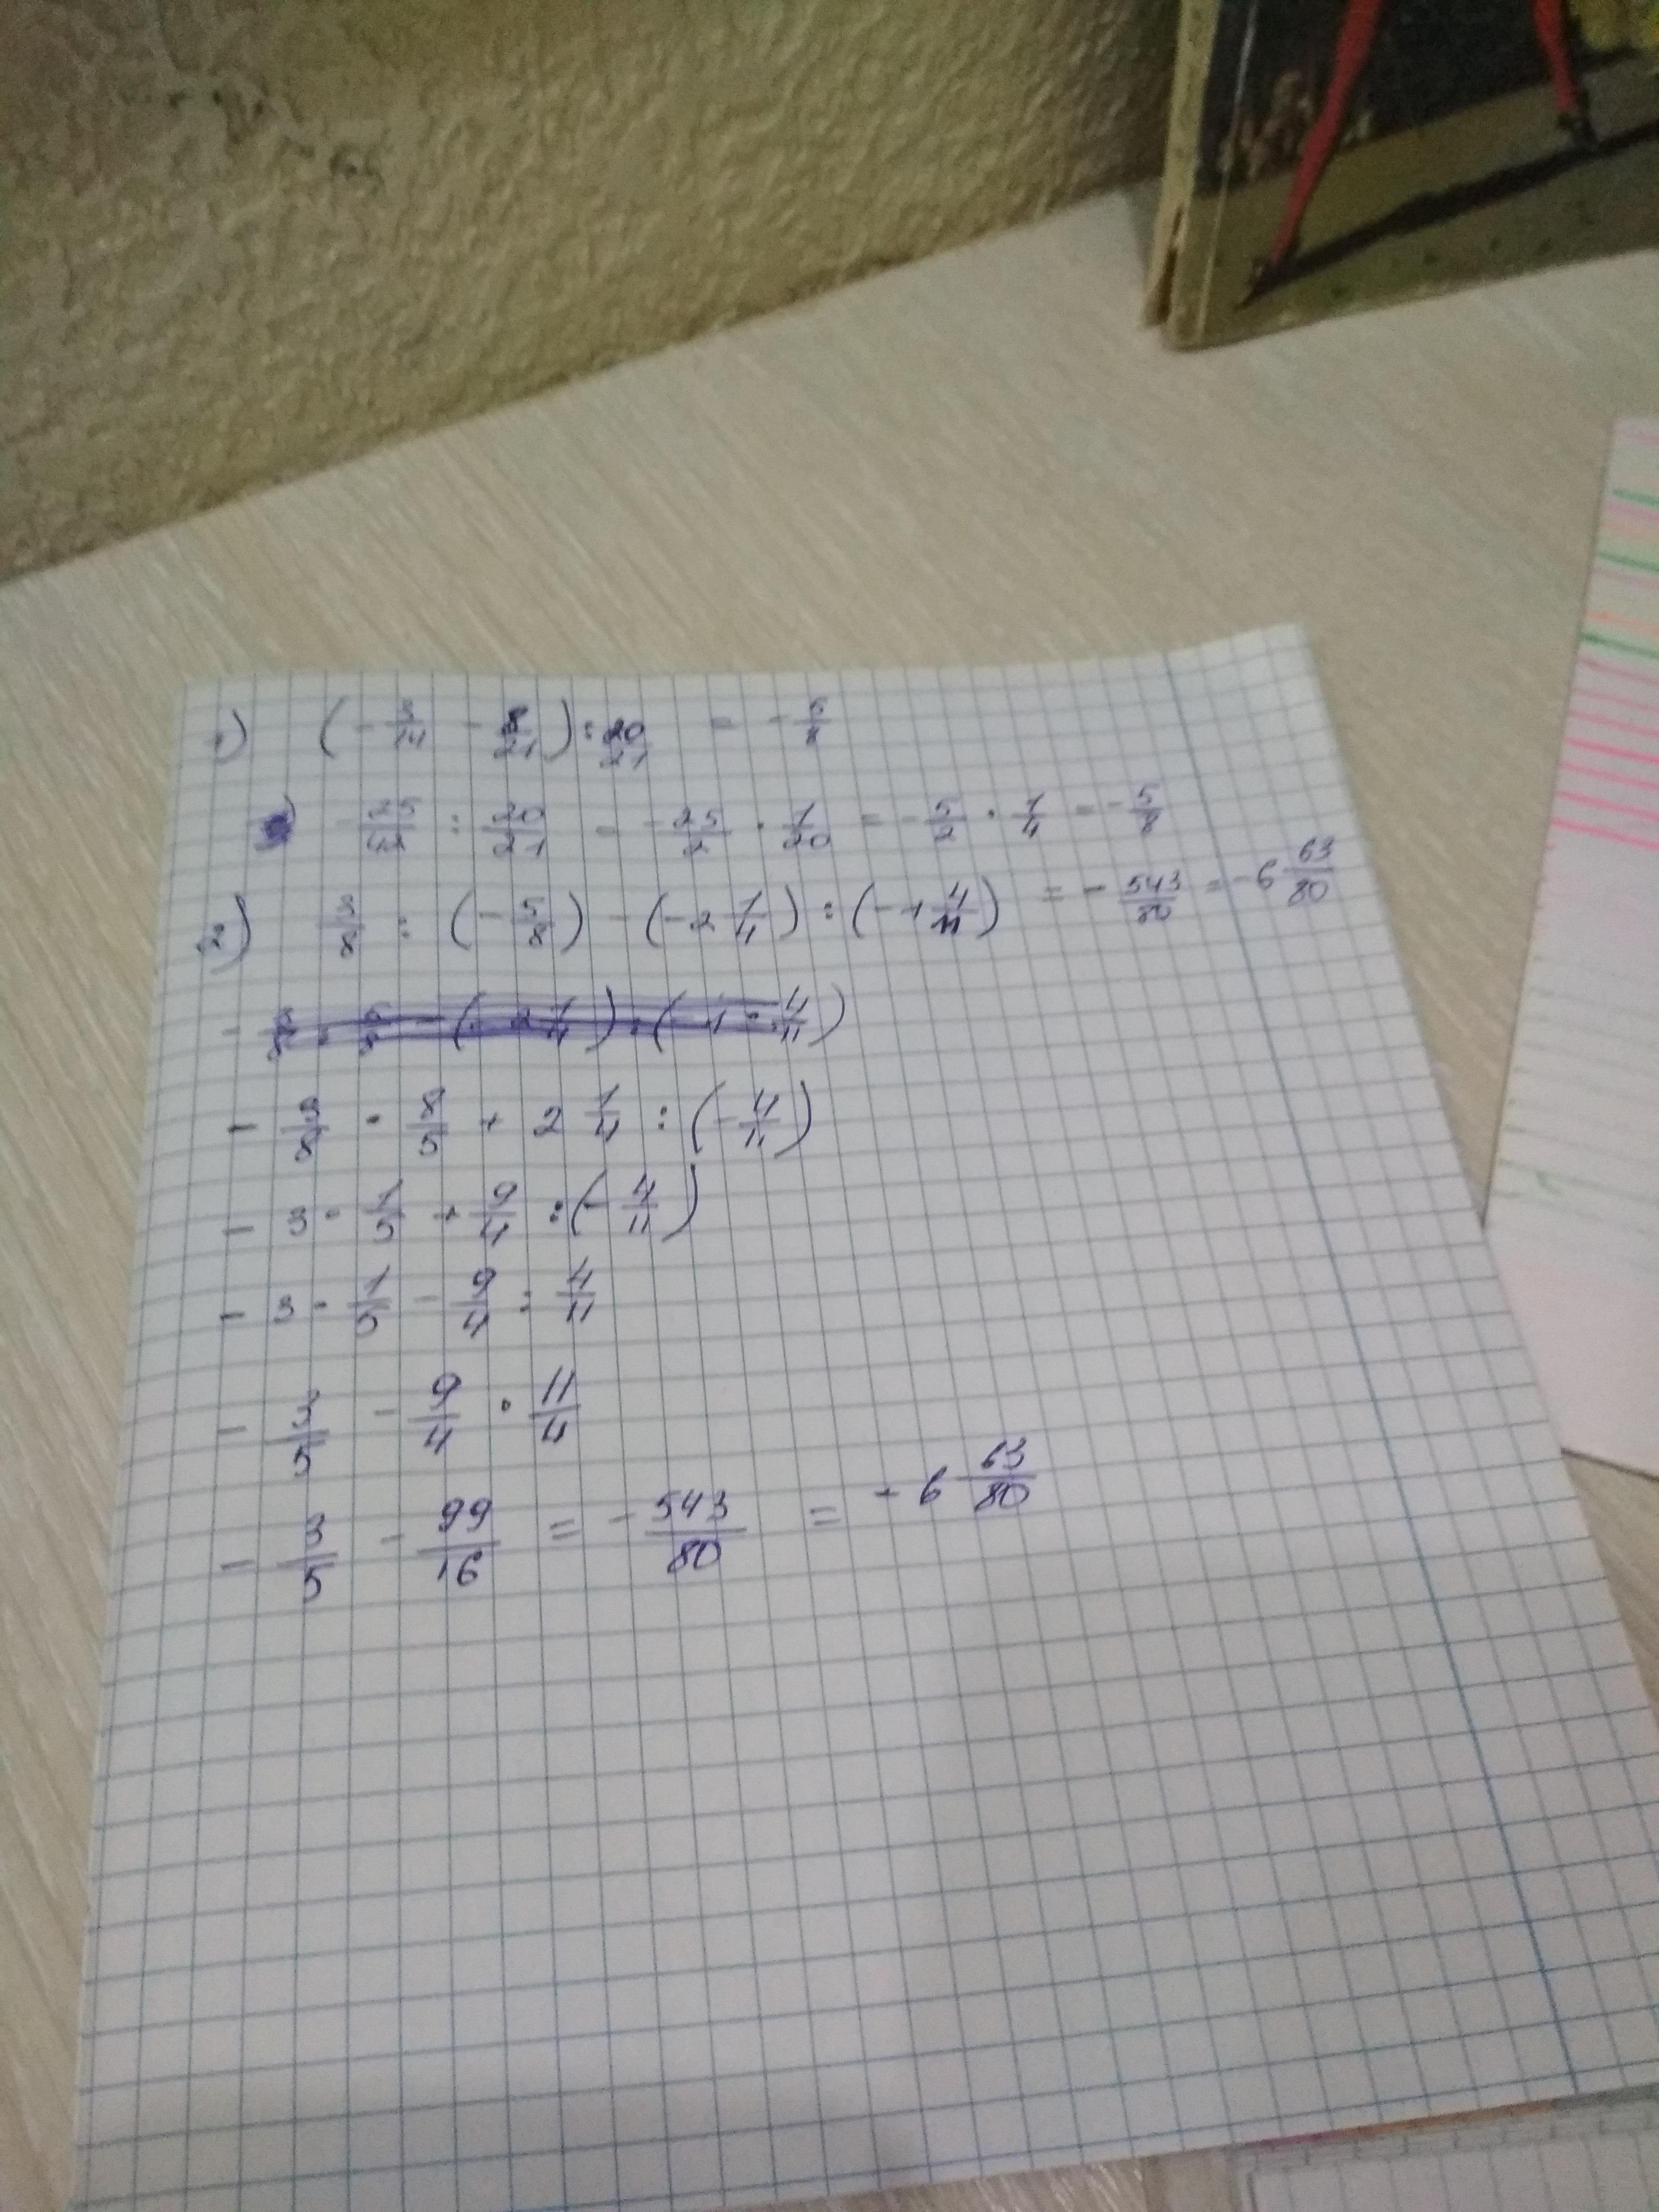 1) (- 3/14 - 8/21) : 20/21 = - 5/8
- 25/42 : 20/21 = - 25/2 · 1/20 = - 5/2 · 1/4 = - 5/8
2) 3/8 : (- 5/8) - (-2 1/4) : (-1 4/11) = - 543/80 = -6 63/80
- 3/8 · 8/5 + 2 1/4 : (- 4/11)
- 3 · 1/5 + 9/4 : (- 4/11)
- 3 · 1/5 - 9/4 : 4/11
- 3/5 - 9/4 · 11/4
- 3/5 - 99/16 = - 543/80 = - 6 63/80